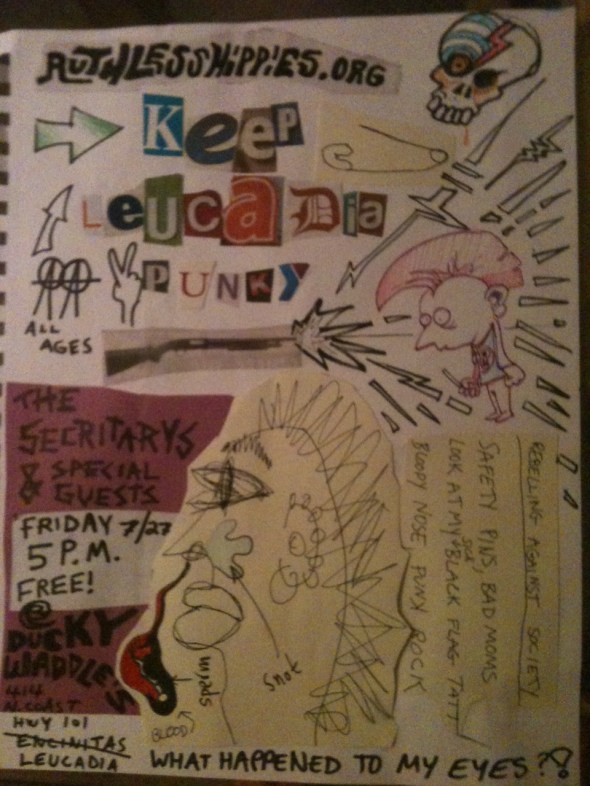 RUTHLESSHIPPIES.ORG
Keep
LeUCaDia
PUNKY
ALL
AGES
THE
SECRITARYS
& SPECIAL
GUESTS
FRIDAY 7/27
5 P.M.
FREE!
@
DUCKY
WADDLES
414
N. COAST
HWY 101
ENCINITAS
LEUCADIA
REBELLING AGAINST SOCIETY
SAFETY PINS, BAD MOMS
LOOK AT MY SICK BLACK FLAG TATT
BLOODY NOSE, PUNX ROCK
Snot
BLOOD
WHAT HAPPENED TO MY EYES?!